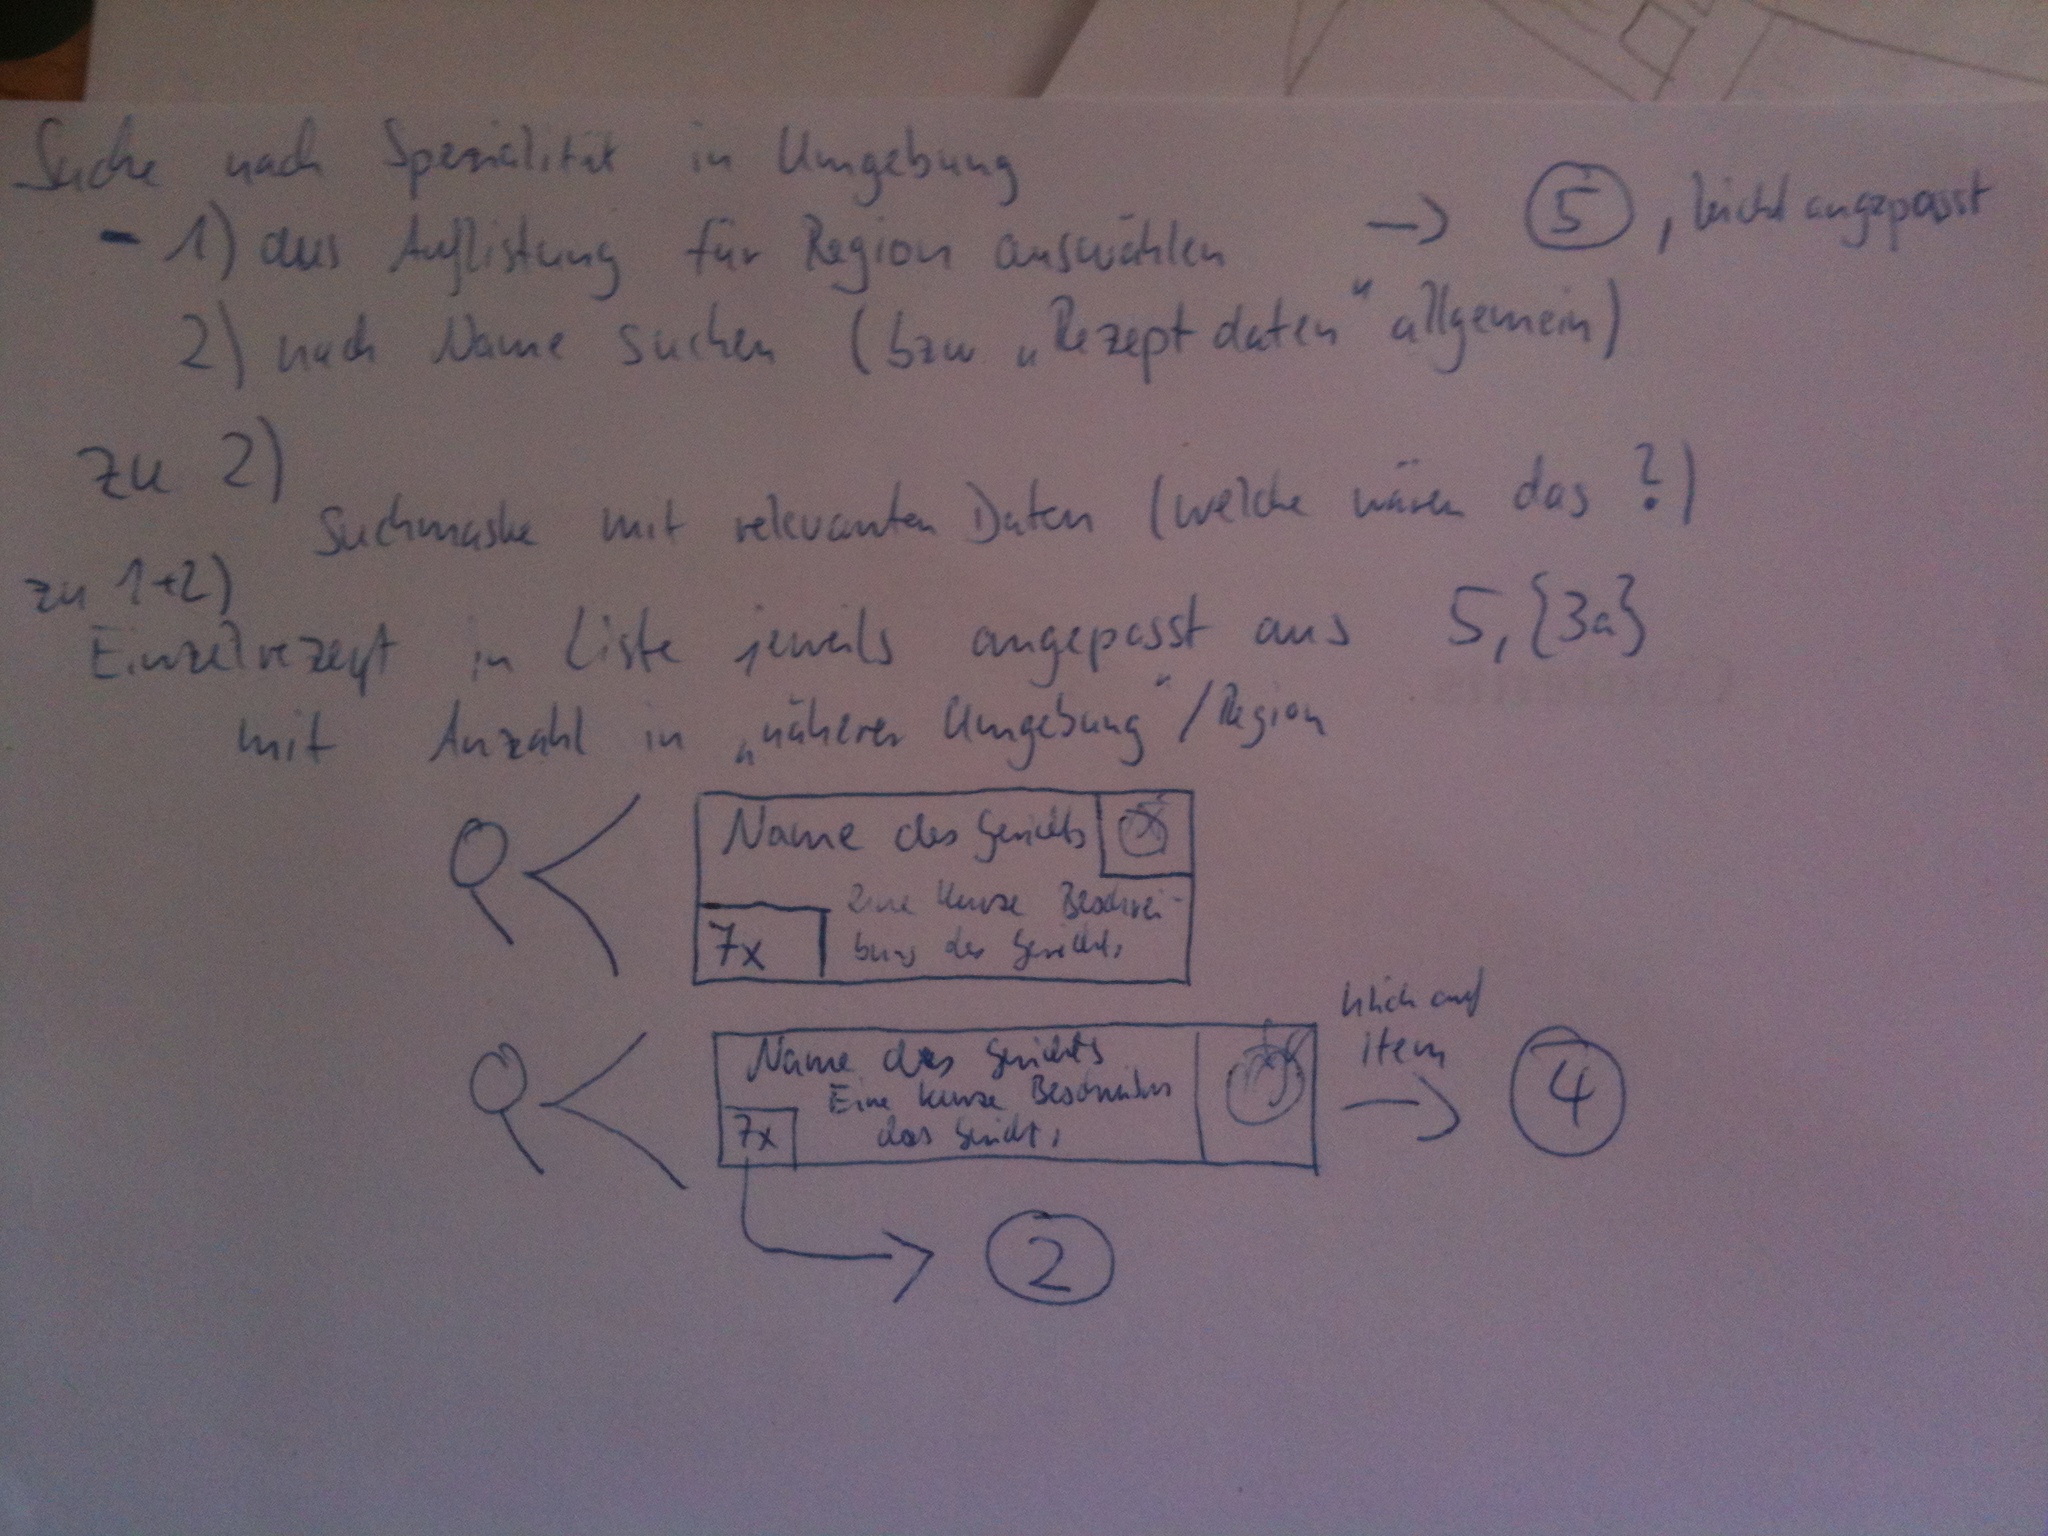 Suche nach Spezialität in Umgebung
- 1) aus Auflistung für Region auswählen → 5, leicht angepasst
2) nach Name suchen (bzw „Rezeptdaten" allgemein)
zu 2)
Suchmaske mit relevanten Daten (welche wären das ?)
zu 1+2)
Einzelrezept in Liste jeweils angepasst aus 5, {3a}
mit Anzahl in „näherer Umgebung"/Region
Name des Gerichts
Eine kurze Beschrei-
bung des Gerichts
7x
klick auf
item
→ 4
Name des Gerichts
Eine kurze
das Gericht,
7x
→ 2